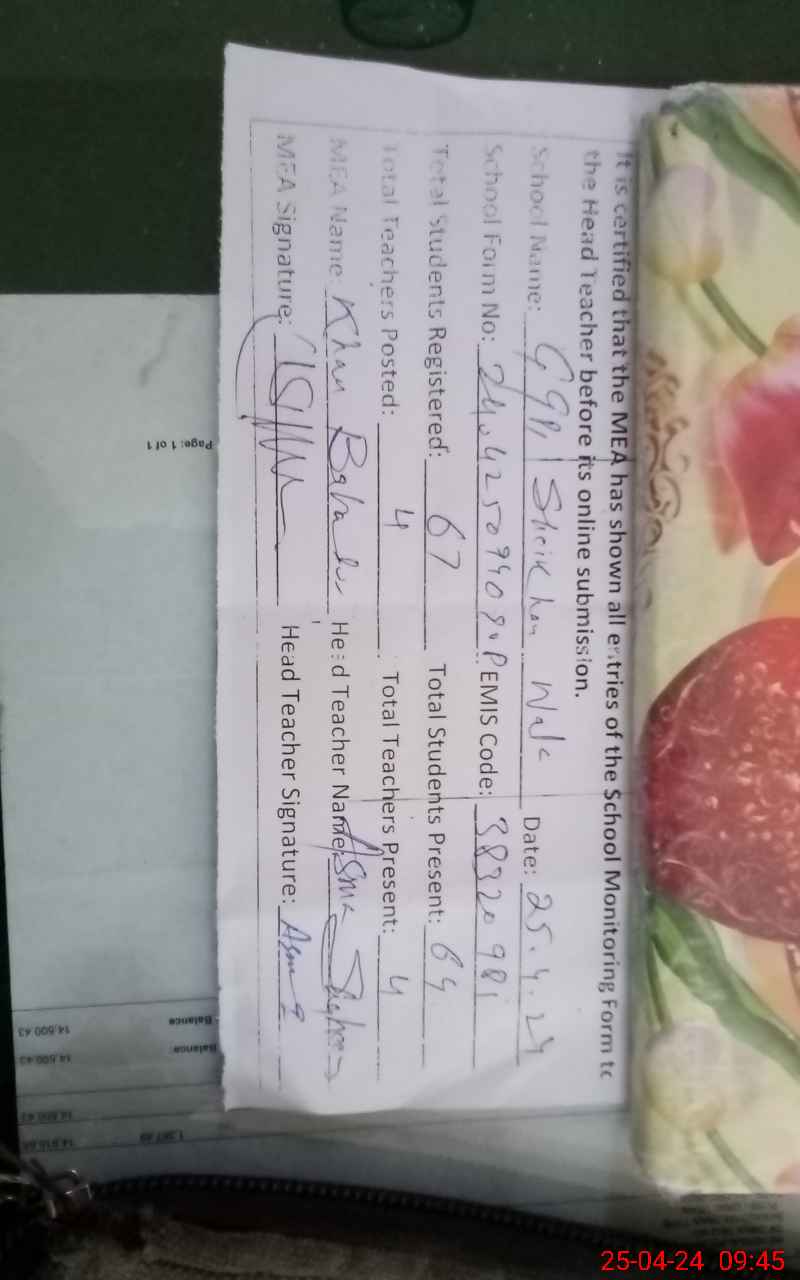 It is certified that the MEA has shown all entries of the School Monitoring Form to
the Head Teacher before its online submission.
School Name: GGPS Sheikhan Wala Date: 25.4.24
School Form No: EMIS Code:
Total Students Registered: 67 Total Students Present: 64
Total Teachers Posted: 4 Total Teachers Present: 4
MEA Name: Khan Bahadur Head Teacher Name: Asma
MEA Signature: Head Teacher Signature: Asma
Page: 1 of 1
Balance 14,600.43
Balance 14,600.43
25-04-24 09:45